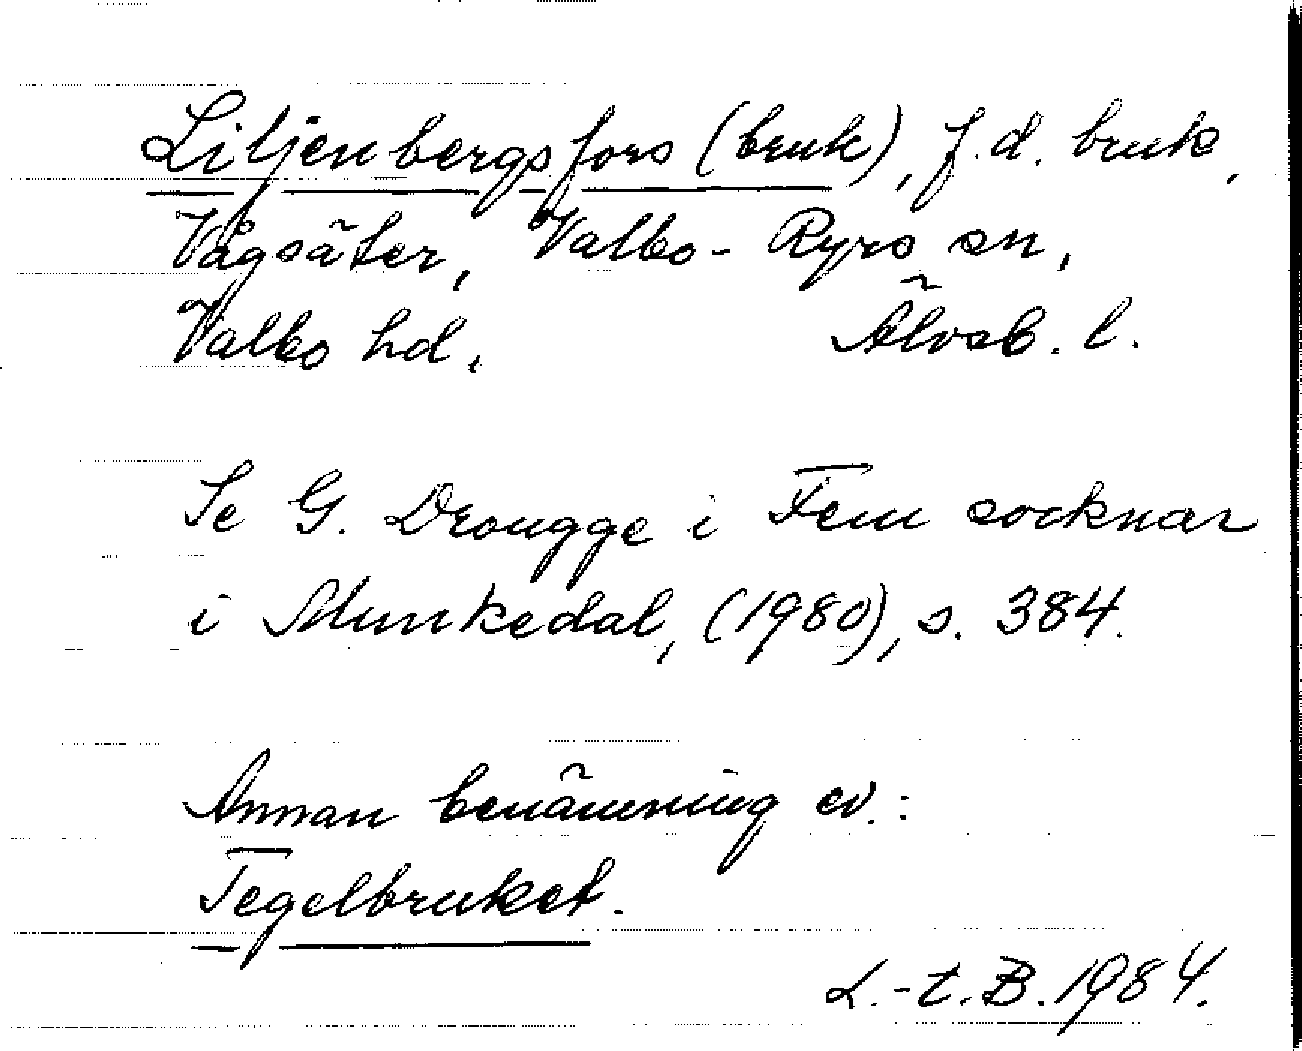 Liljenbergsfors (bruk), f.d. bruk,
Vågsäter, Valbo-Ryrs sn,
Valbo hd, Älvsb. l.
Se G. Drougge i Fem socknar
i Munkedal, (1980), s. 384.
Annan benämning ev.:
Tegelbruket.
L.-t. B. 1984.